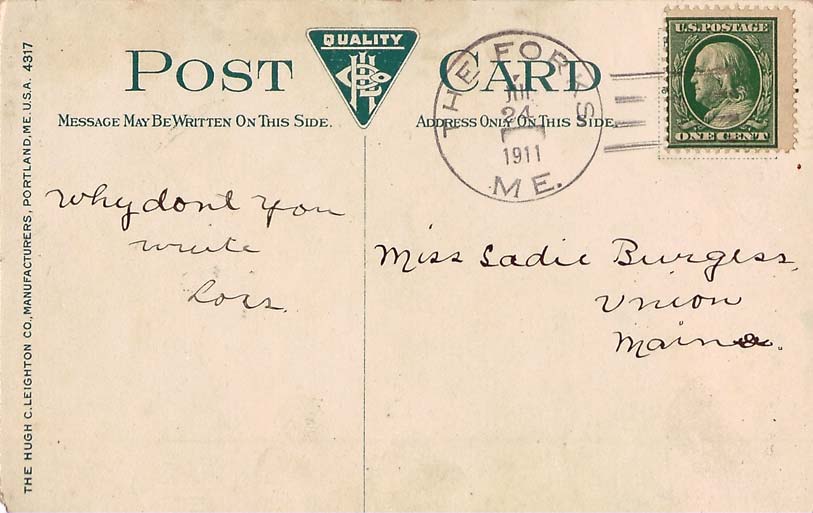 THE HUGH C. LEIGHTON CO., MANUFACTURERS, PORTLAND, ME. U.S.A. 4317
POST CARD
QUALITY
MESSAGE MAY BE WRITTEN ON THIS SIDE.
ADDRESS ONLY ON THIS SIDE.
THE FORKS
24
1911
ME.
U.S. POSTAGE
ONE CENT
Why dont you
write
Lois.
Miss Sadie Burgess,
Union
Maine.